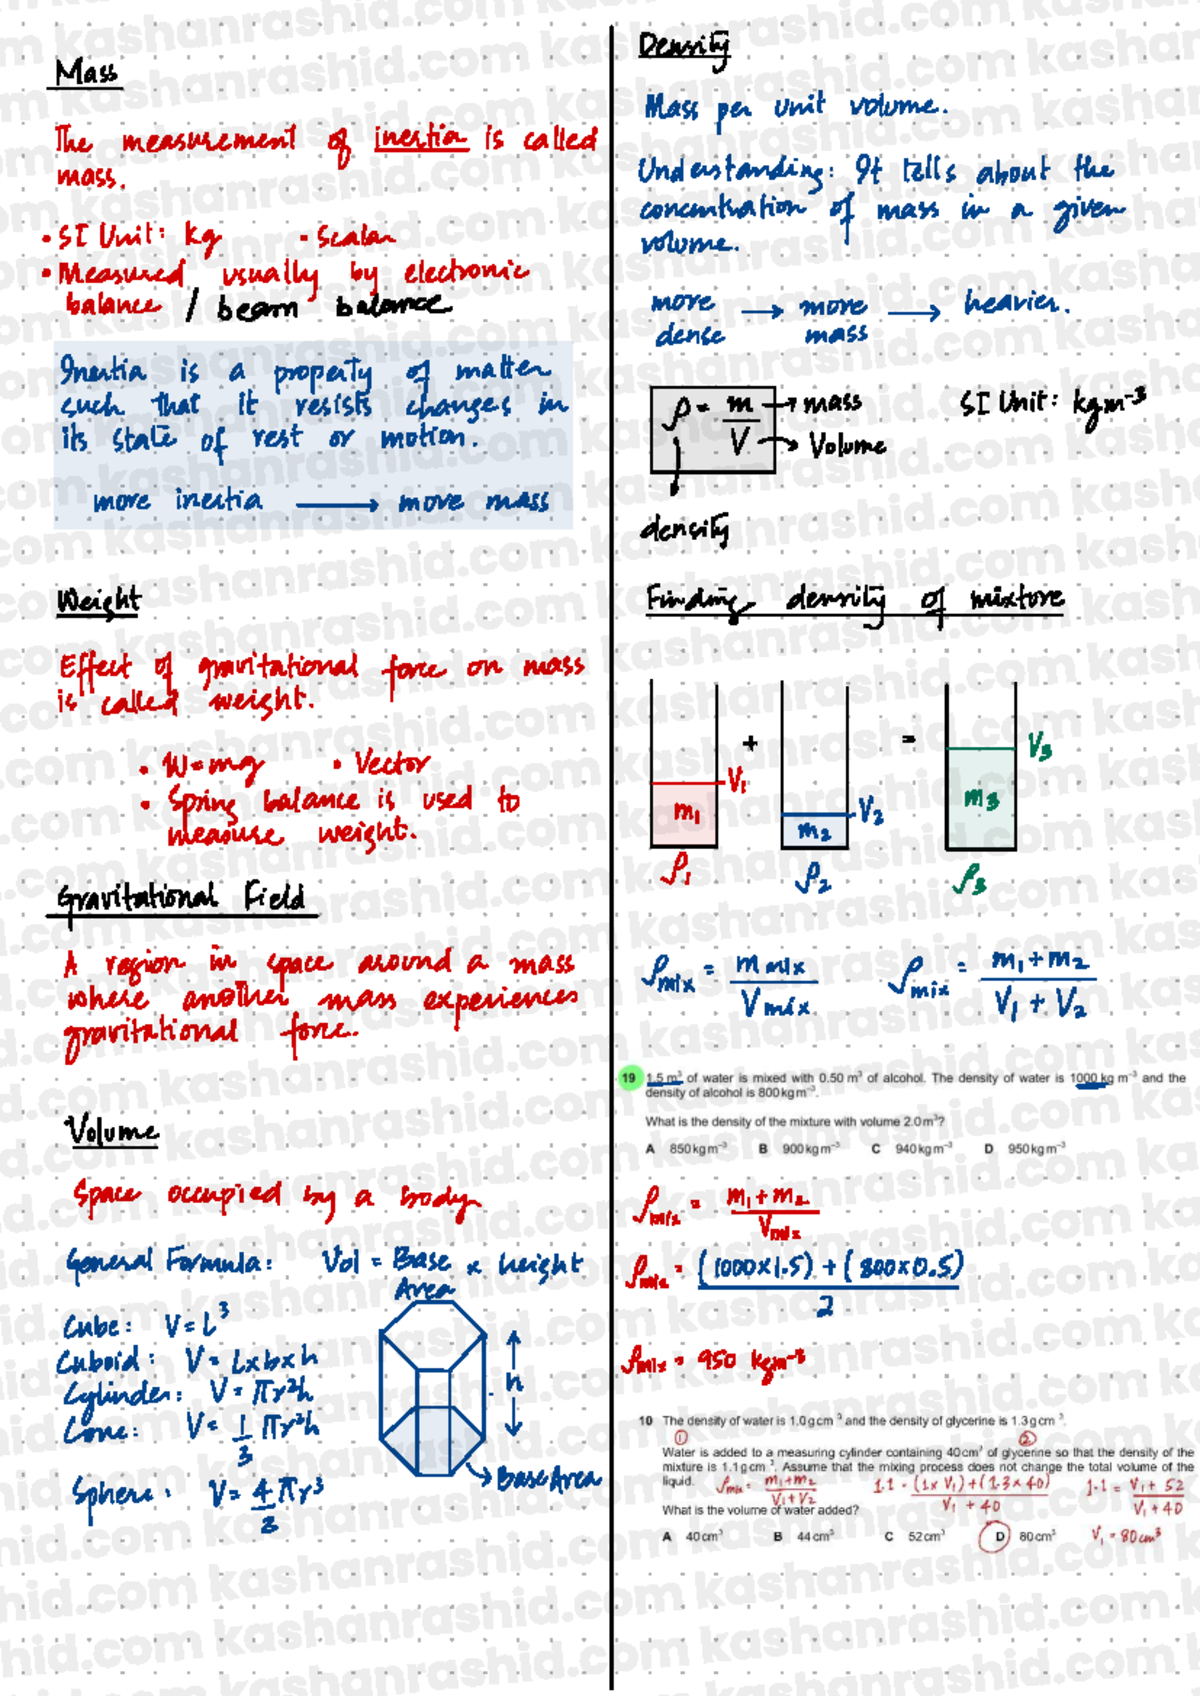 Mass
The measurement of inertia is called
mass.
• SI Unit: kg • Scalar
• Measured usually by electronic
balance / beam balance
Inertia is a property of matter
such that it resists changes in
its state of rest or motion.
more inertia → more mass
Weight
Effect of gravitational force on mass
is called weight.
• W=mg • Vector
• Spring balance is used to
measure weight.
Gravitational Field
A region in space around a mass
where another mass experiences
gravitational force.
Volume
Space occupied by a body
General Formula: Vol = Base Area × height
Cube: V = L³
Cuboid: V = L×b×h
Cylinder: V = πr²h
Cone: V = 1/3 πr²h
Sphere: V = 4/3 πr³
h
Base Area
Density
Mass per unit volume.
Understanding: It tells about the
concentration of mass in a given
volume.
more dense → more mass → heavier.
ρ = m/V → mass
→ Volume
SI Unit: kgm⁻³
density
Finding density of mixture
m₁ V₁ + m₂ V₂ = m₃ V₃
ρ₁ ρ₂ ρ₃
ρmix = m mix / V mix ρmix = m₁+m₂ / V₁+V₂
19 1.5 m³ of water is mixed with 0.50 m³ of alcohol. The density of water is 1000 kg m⁻³ and the
density of alcohol is 800 kg m⁻³.
What is the density of the mixture with volume 2.0 m³?
A 850 kg m⁻³ B 900 kg m⁻³ C 940 kg m⁻³ D 950 kg m⁻³
ρmix = m₁+m₂ / Vmix
ρmix = (1000×1.5) + (800×0.5) / 2
ρmix = 950 kgm⁻³
10 The density of water is 1.0 g cm⁻³ and the density of glycerine is 1.3 g cm⁻³.
① ②
Water is added to a measuring cylinder containing 40 cm³ of glycerine so that the density of the
mixture is 1.1 g cm⁻³. Assume that the mixing process does not change the total volume of the
liquid. ρmix = m₁+m₂ / V₁+V₂ 1.1 = (1×V₁)+(1.3×40) / V₁+40 1.1 = V₁+52 / V₁+40
What is the volume of water added?
A 40 cm³ B 44 cm³ C 52 cm³ D 80 cm³ V₁ = 80cm³
kashanrashid.com